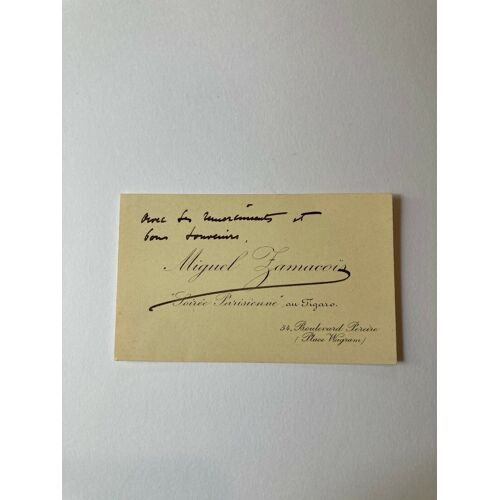 Avec ses remerciements et
bons souvenirs,
Miguel Zamacoïs
"Soirée Parisienne" au Figaro.
34, Boulevard Pereire
(Place Wagram)